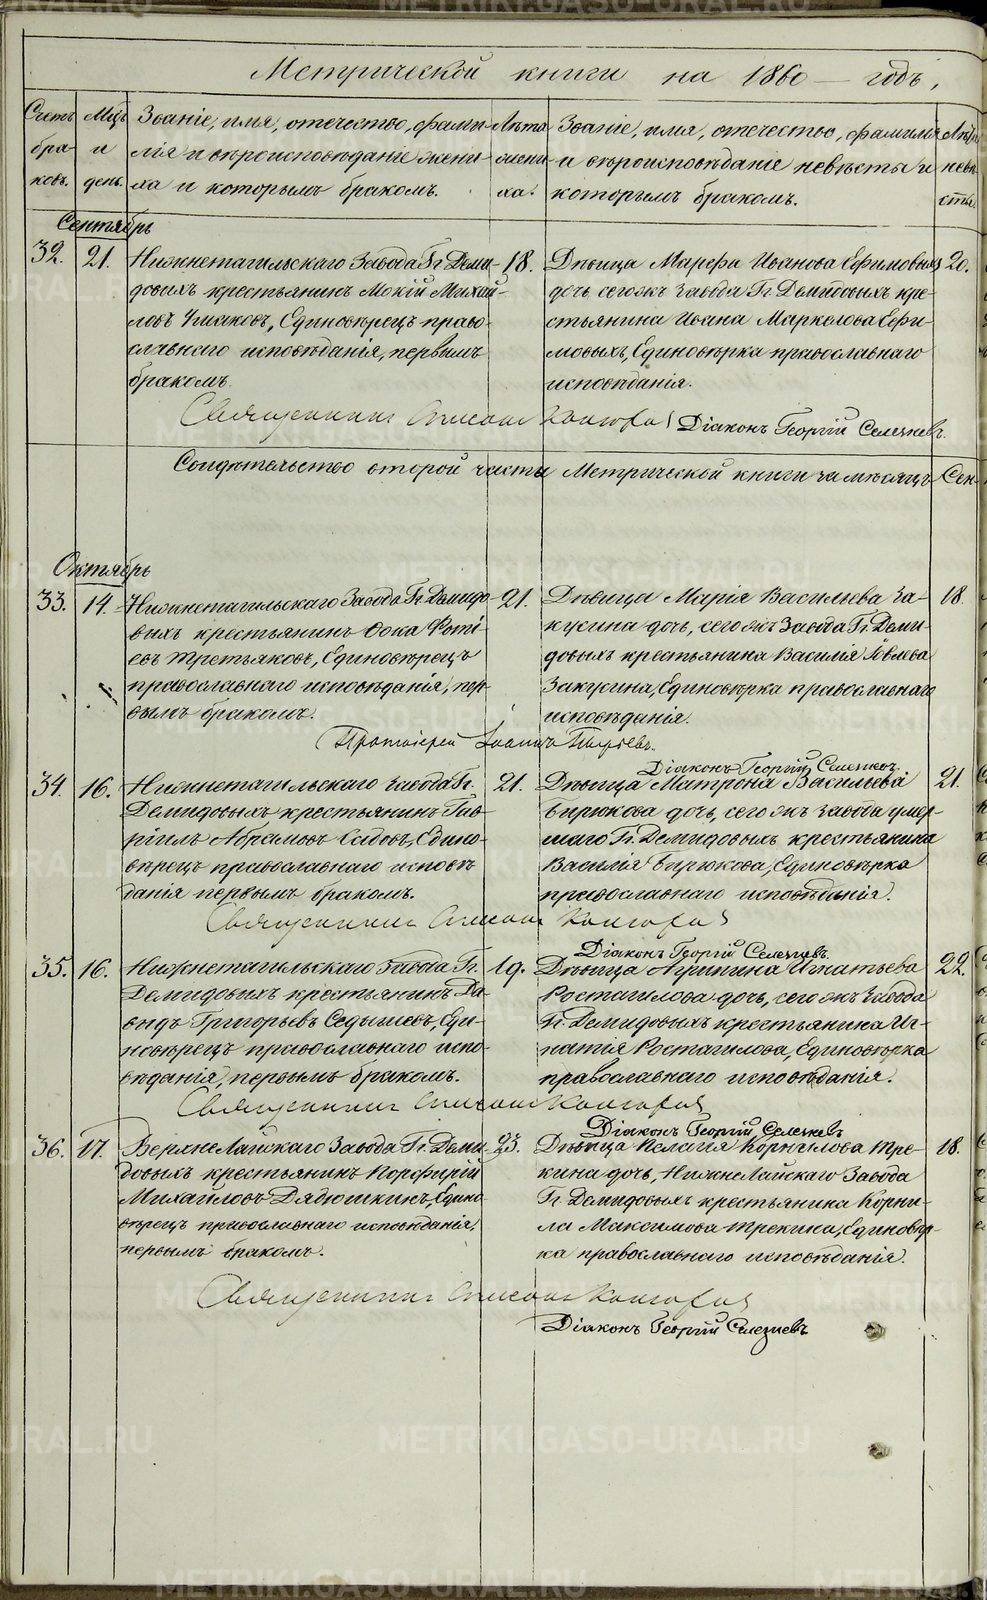 Метрической книги на 1860 — годъ,
Счетъ бра- ковъ.
Мцъ и день.
Званіе, имя, отечество, фами-
лія и вѣроисповѣданіе жени-
ха и которымъ бракомъ.
Лѣта жени- ха.
Званіе, имя, отечество, фамилія
и вѣроисповѣданіе невѣсты и
которымъ бракомъ.
Лѣта невѣ- сты.
Сентябрь
32.
21.
Нижнетагильскаго Завода Гг. Деми-
довыхъ крестьянинъ Мокій Михай-
ловъ Чмаковъ, Единовѣрецъ право-
славнаго исповѣданія, первымъ
бракомъ.
18.
Дѣвица Марѳа Иванова Ефимовыхъ
дочь сегожъ Завода Гг. Демидовыхъ кре-
стьянина Ивана Маркелова Ефи-
мовыхъ, Единовѣрка православнаго
исповѣданія.
20.
Священникъ
Діаконъ Георгій Селезневъ.
Свидѣтельство второй части Метрической книги за мѣсяцъ Сен-
Октябрь
33.
14.
Нижнетагильскаго Завода Гг. Демидо-
выхъ крестьянинъ Ѳока Фоті-
евъ Третьяковъ, Единовѣрецъ
православнаго исповѣданія, пер-
вымъ бракомъ.
21.
Дѣвица Марія Васильева За-
кусина дочь, сегожъ Завода Гг. Деми-
довыхъ крестьянина Василія Іовлева
Закусина, Единовѣрка православнаго
исповѣданія.
18.
Протоіерей Іоаннъ Пырьевъ.
Діаконъ Георгій Селезневъ.
34.
16.
Нижнетагильскаго завода Гг.
Демидовыхъ крестьянинъ Гав-
ріилъ Абрамовъ Седовъ, Едино-
вѣрецъ православнаго исповѣ-
данія первымъ бракомъ.
21.
Дѣвица Матрона Васильева
Бирюкова дочь, сегожъ завода умер-
шаго Гг. Демидовыхъ крестьянина
Василія Бирюкова, Единовѣрка
православнаго исповѣданія.
21.
Священникъ
Діаконъ Георгій Селезневъ.
35.
16.
Нижнетагильскаго Завода Гг.
Демидовыхъ крестьянинъ Да-
видъ Григорьевъ Седышевъ, Еди-
новѣрецъ православнаго испо-
вѣданія, первымъ бракомъ.
19.
Дѣвица Агрипина Игнатьева
Ростагилова дочь, сегожъ Завода
Гг. Демидовыхъ крестьянина Иг-
натія Ростагилова, Единовѣрка
православнаго исповѣданія.
22.
Священникъ
Діаконъ Георгій Селезневъ
36.
17.
ВерхнеЛайскаго Завода Гг. Деми-
довыхъ крестьянинъ Порфирій
Михаиловъ Дядюшкинъ, Едино-
вѣрецъ православнаго исповѣданія,
первымъ бракомъ.
23.
Дѣвица Пелагія Корнилова Тре-
кина дочь, НижнеЛайскаго Завода
Гг. Демидовыхъ крестьянина Корни-
ла Максимова Трекина, Единовѣр-
ка православнаго исповѣданія.
18.
Священникъ
Діаконъ Георгій Селезневъ
METRIKI.GASO-URAL.RU